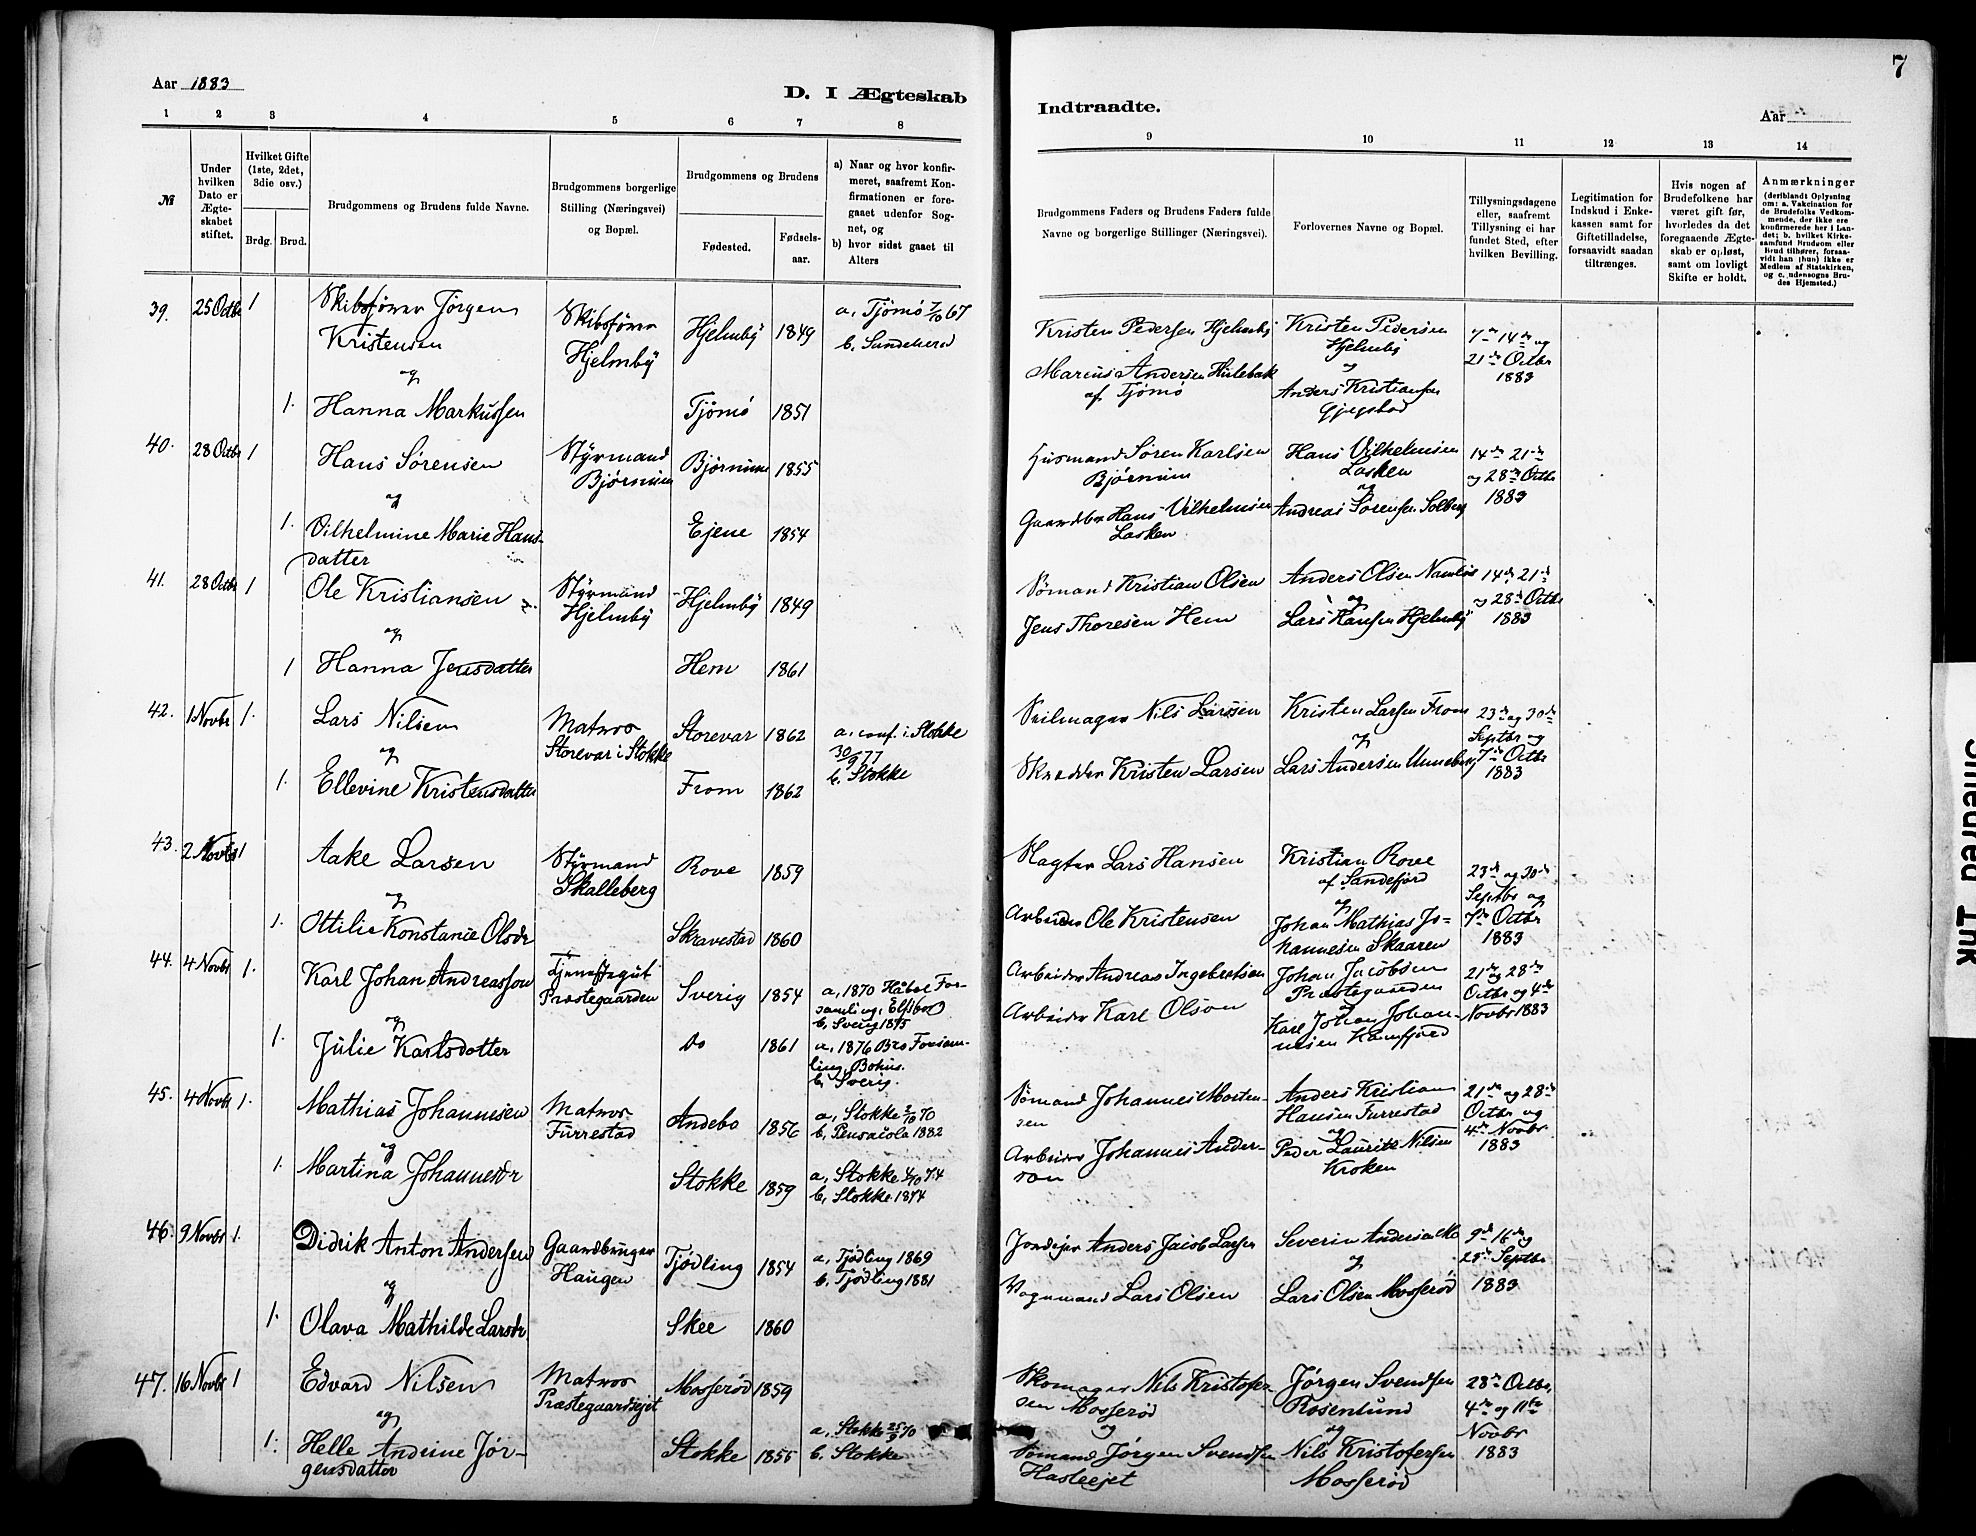 Aar 1883
D. I Ægteskab
1 2 3 4 5 6 7 8
№
Under hvilken Dato er Ægteskabet stiftet.
Hvilket Gifte (1ste, 2det, 3die osv.)
Brdg. Brud.
Brudgommens og Brudens fulde Navne.
Brudgommens borgerlige Stilling (Næringsvei) og Bopæl.
Brudgommens og Brudens
Fødested. Fødselsaar.
a) Naar og hvor konfirmeret, saafremt Konfirmationen er foregaaet udenfor Sognet, og
b) hvor sidst gaaet til Alters
39. 25 Octbr 1
Skibsfører Jörgen
Kristensen
og
1. Hanna Markussen
Skibsfører
Hjelmby
Hjelmby 1849
Tjömö 1851
a, Tjömö 7/10 67
40. 28 Octbr 1
Hans Sørensen
og
1. Vilhelmine Marie Hans-
datter
Styrmand
Bjørnum
Bjørnum 1855
Ejene 1854
41. 28 Octbr 1
Ole Kristiansen
og
1 Hanna Jensdatter
Styrmand
Hjelmby
Hjelmby 1849
Hem 1861
42. 1 Novbr 1.
Lars Nilsen
og
1. Ellevine Kristensdatter
Matros
Storevar i Stokke
Storevar 1862
From 1862
a, conf. i Stokke
30/9 77
b, Stokke
43. 2 Novbr 1
Aake Larsen
og
1. Ottilie Konstanse Olsdr
Styrmand
Skalleberg
Rove 1859
Skravestad 1860
44. 4 Novbr 1.
Karl Johan Andreasson
og
1. Julie Karlsdotter
Tjenestegut
Præstegaarden
Sverig 1854
Do 1861
a, 1870 Håbol For-
b, Sverig 1875
a, 1876 Bro Forsam-
ling, Bohus.
b, Sverig.
45. 4 Novbr 1.
Mathias Johannesen
og
1. Martina Johannesdr
Matros
Furrestad
Andebo 1856
Stokke 1859
a, Stokke 2/10 70
b, Pensacola 1882
a, Stokke 4/10 74
b, Stokke 1874
46. 9 Novbr 1.
Didrik Anton Andersen
og
1. Olava Mathilde Larsdr
Gaardbruger
Haugen
Tjødling 1854
Skee 1860
a, Tjødling 1869
b, Tjødling 1881
47. 16 Novbr 1
Edvard Nilsen
og
1. Helle Andrine Jør-
gensdatter
Matros
Præstegaardsejet
Mosserød 1859
Stokke 1855
a, Stokke 25/9 70
b. Stokke
7
Indtraadte.
Aar
9 10 11 12 13 14
Brudgommens Faders og Brudens Faders fulde Navne og borgerlige Stillinger (Næringsvei).
Forlovernes Navne og Bopæl.
Tillysningsdagene eller, saafremt Tillysning ei har fundet Sted, efter hvilken Bevilling.
Legitimation for Indskud i Enkekassen samt for Giftetilladelse, forsaavidt saadan tiltrænges.
Hvis nogen af Brudefolkene har været gift før, hvorledes da det foregaaende Ægteskab er opløst, samt om lovligt Skifte er holdt.
Anmærkninger (deriblandt Oplysning om: a. Vakcination for de Brudefolks Vedkommende, der ikke ere konfirmerede her i Landet; b. hvilket Kirkesamfund Brudgom eller Brud tilhører, forsaavidt han (hun) ikke er Medlem af Statskirken, og c. udensogns Brudes Hjemsted.)
Kristen Pedersen Hjelmby
Marcus Andersen Hulebak
af Tjömö
Kristen Pedersen
Hjelmby
og
Anders Kristiansen
7de 14de og
21de Octbr
1883
Husmand Søren Karlsen
Bjørnum
Gaardbr Hans Vilhelmsen
Lasken
Hans Vilhelmsen
Lasken
og
Andreas Sørensen Solberg
14de 21de
og 28de Octbr
1883
Sømand Kristian Olsen
Jens Thoresen Hem
Anders Olsen
og
Lars Hansen Hjelmby
14de 21de
og 28de Octbr
1883
Seilmager Nils Larsen
Skrædder Kristen Larsen
Kristen Larsen From
og
Lars Andersen Unneberg
23de og 30de
Septbr og
7de Octbr
1883
Slagter Lars Hansen
Arbeider Ole Kristensen
Kristian Rove
af Sandefjord
og
Johan Mathias Jo-
hannesen Skaaren
23de og 30de
Septbr og
7de Octbr
1883
Arbeider Andreas Ingebretsen
Arbeider Karl Olson
Johan Jacobsen
Præstegaarden
og
Karl Johan Johan-
nesen
21de og 28de
Octbr og 4de
Novbr 1883
Sømand Johannes Morten-
sen
Arbeider Johannes Ander-
son
Anders Kristian
Hansen Furrestad
og
Peder Lauritz Nilsen
Kroken
21de og 28de
Octbr og
4de Novbr
1883
Jordejer Anders Jacob Larsen
Vognmand Lars Olsen
Severin Andersen Mo
og
Lars Olsen Mosserød
9de 16de og
23de Septbr
1883
Skomager Nils Kristofer-
sen Mosserød
og
Sømand Jørgen Svendsen
Hasleejet
Jørgen Svendsen
Rosenlund
og
Nils Kristofersen
Mosserød
28de Octbr,
4de og 11te
Novbr
1883
Smeared Ink